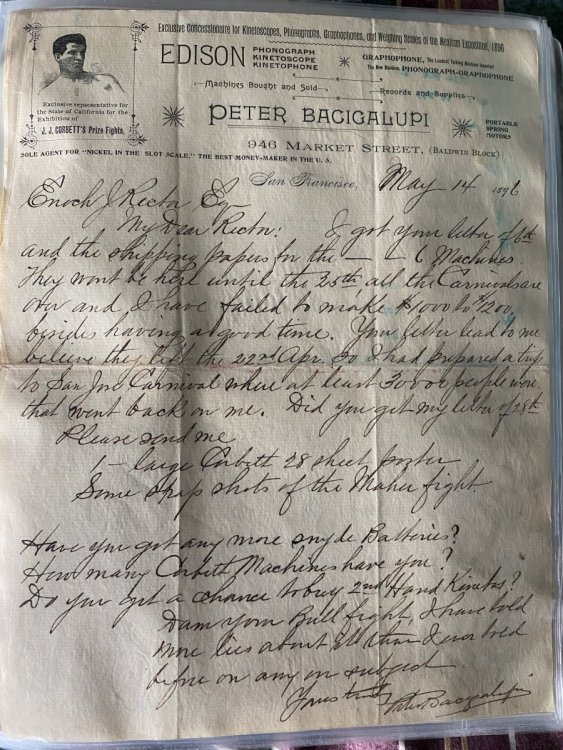 Exclusive Concessionaire for Kinetoscopes, Phonographs, Graphophones, and Weighing Scales of the Mexican Exposition, 1896
EDISON PHONOGRAPH
KINETOSCOPE
KINETOPHONE
GRAPHOPHONE, The Loudest Talking Machine Invented
The New Machine, PHONOGRAPH-GRAPHOPHONE
Machines Bought and Sold
Records and Supplies
Exclusive representative for
the State of California for the
Exhibition of
J. J. CORBETT'S Prize Fights.
PETER BACIGALUPI
PORTABLE
SPRING
MOTORS
946 MARKET STREET, (BALDWIN BLOCK)
SOLE AGENT FOR "NICKEL IN THE SLOT SCALE," THE BEST MONEY-MAKER IN THE U. S.
San Francisco, May 14 1896
Enoch J Rector Esq
My Dear Rector: I got your letter of
and the shipping papers for the — — 6 Machines.
They wont be here until the 25th all the Carnivals are
over and, I have failed to make $1000 to $1200
besides having a good time. Your letter lead to me
believe they left the 22nd Apr. So I had prepared a trip
to San Jose Carnival where at least 30000 people were.
that went back on me. Did you get my letter of 28th
Please send me
1 — large Corbett 28 sheet poster
Some snap shots of the Maher fight.
Have you got any more snyde Batteries?
How many Corbett Machines have you?
Do you get a chance to buy 2nd Hand Kinetos?
Dam your Bull fight, I have told
more lies about it than I ever told
before on any on subject
Yours truly
Peter Bacigalupi